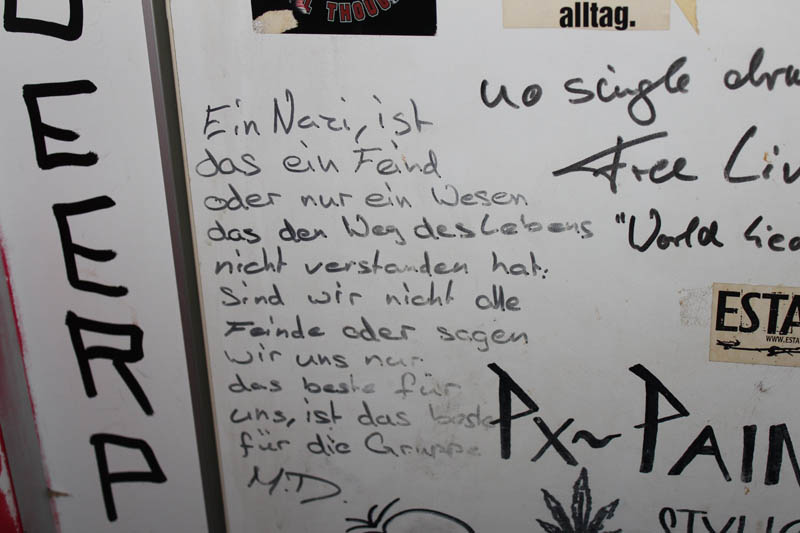 THOUG
alltag.
EERP
no single
Ein Nazi, ist
das ein Feind
oder nur ein Wesen
das den Weg des Lebens
nicht verstanden hat.
Sind wir nicht alle
Feinde oder sagen
wir uns nur
das beste für
uns, ist das beste
für die Gruppe
M.D.
Free Liv
"World
ESTA
WWW.ESTA
Px~PAIN